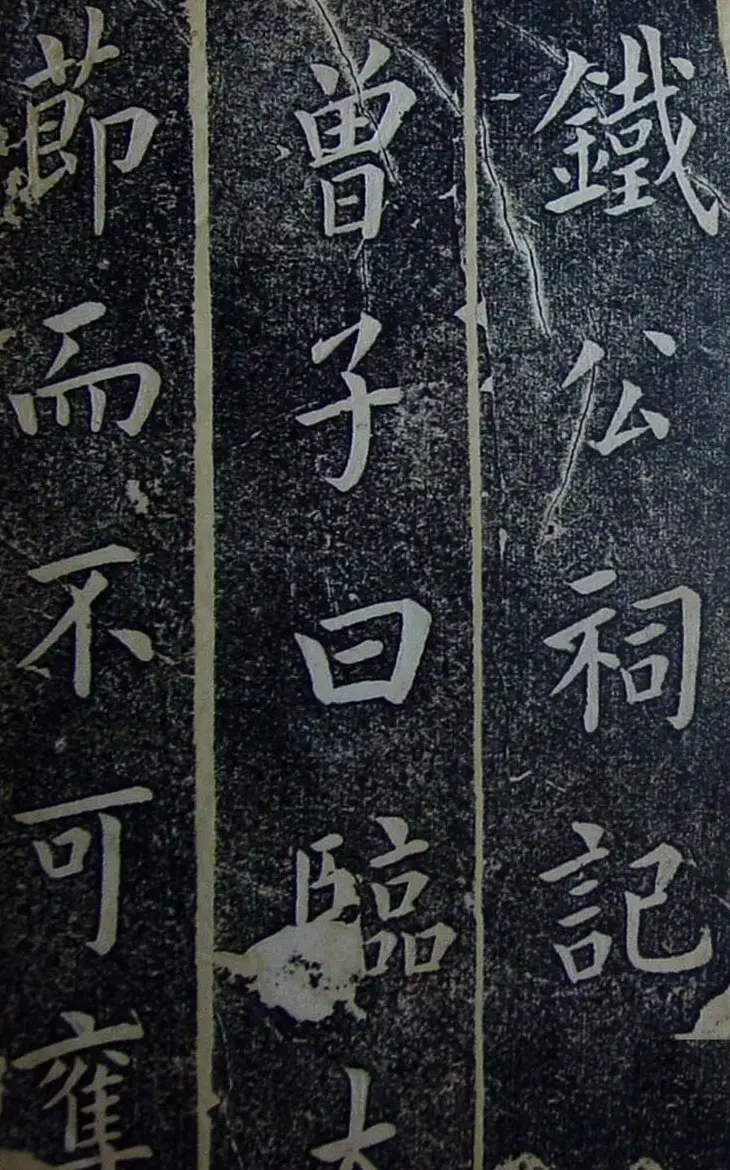 鐵公祠記
曾子曰臨大
節而不可奪